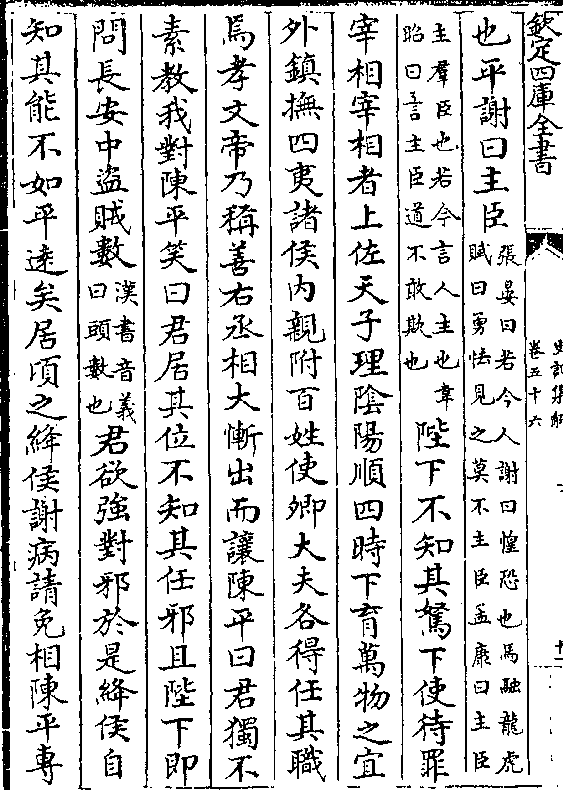 欽定四庫全書
史記集解
卷五十六
十一
也平謝曰主臣張晏曰若今人謝曰惶恐也馬融龍虎
賦曰勇怯見之莫不主臣孟康曰主臣
主羣臣也若今言人主也韋
昭曰言主臣道不敢欺也
陛下不知其駑下使待罪
宰相宰相者上佐天子理陰陽順四時下育萬物之宜
外鎮撫四夷諸侯內親附百姓使卿大夫各得任其職
焉孝文帝乃稱善右丞相大慚出而讓陳平曰君獨不
素教我對陳平笑曰君居其位不知其任邪且陛下即
問長安中盜賊數漢書音義
曰頭數也
君欲強對邪於是絳侯自
知其能不如平遠矣居頃之絳侯謝病請免相陳平專